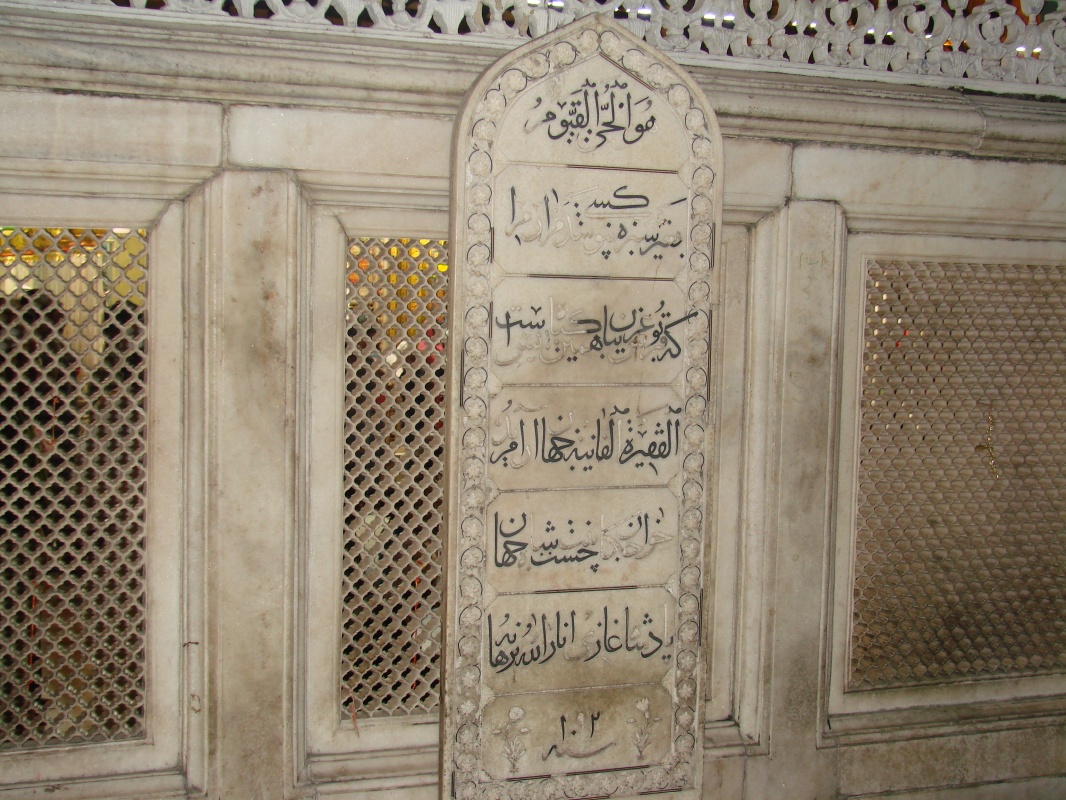 هُوَ الحَیُّ القَیُّومُ
بغیر سبزه نپوشد کسے مزار مرا
که قبرپوش غریبان همین گیاه بس است
الفقیرة الفانیة جهان آرا مرید
خواجگان چشت بنت شاه جهان
بادشاه غازی انار الله برهانه
سنه ۱۰۹۲